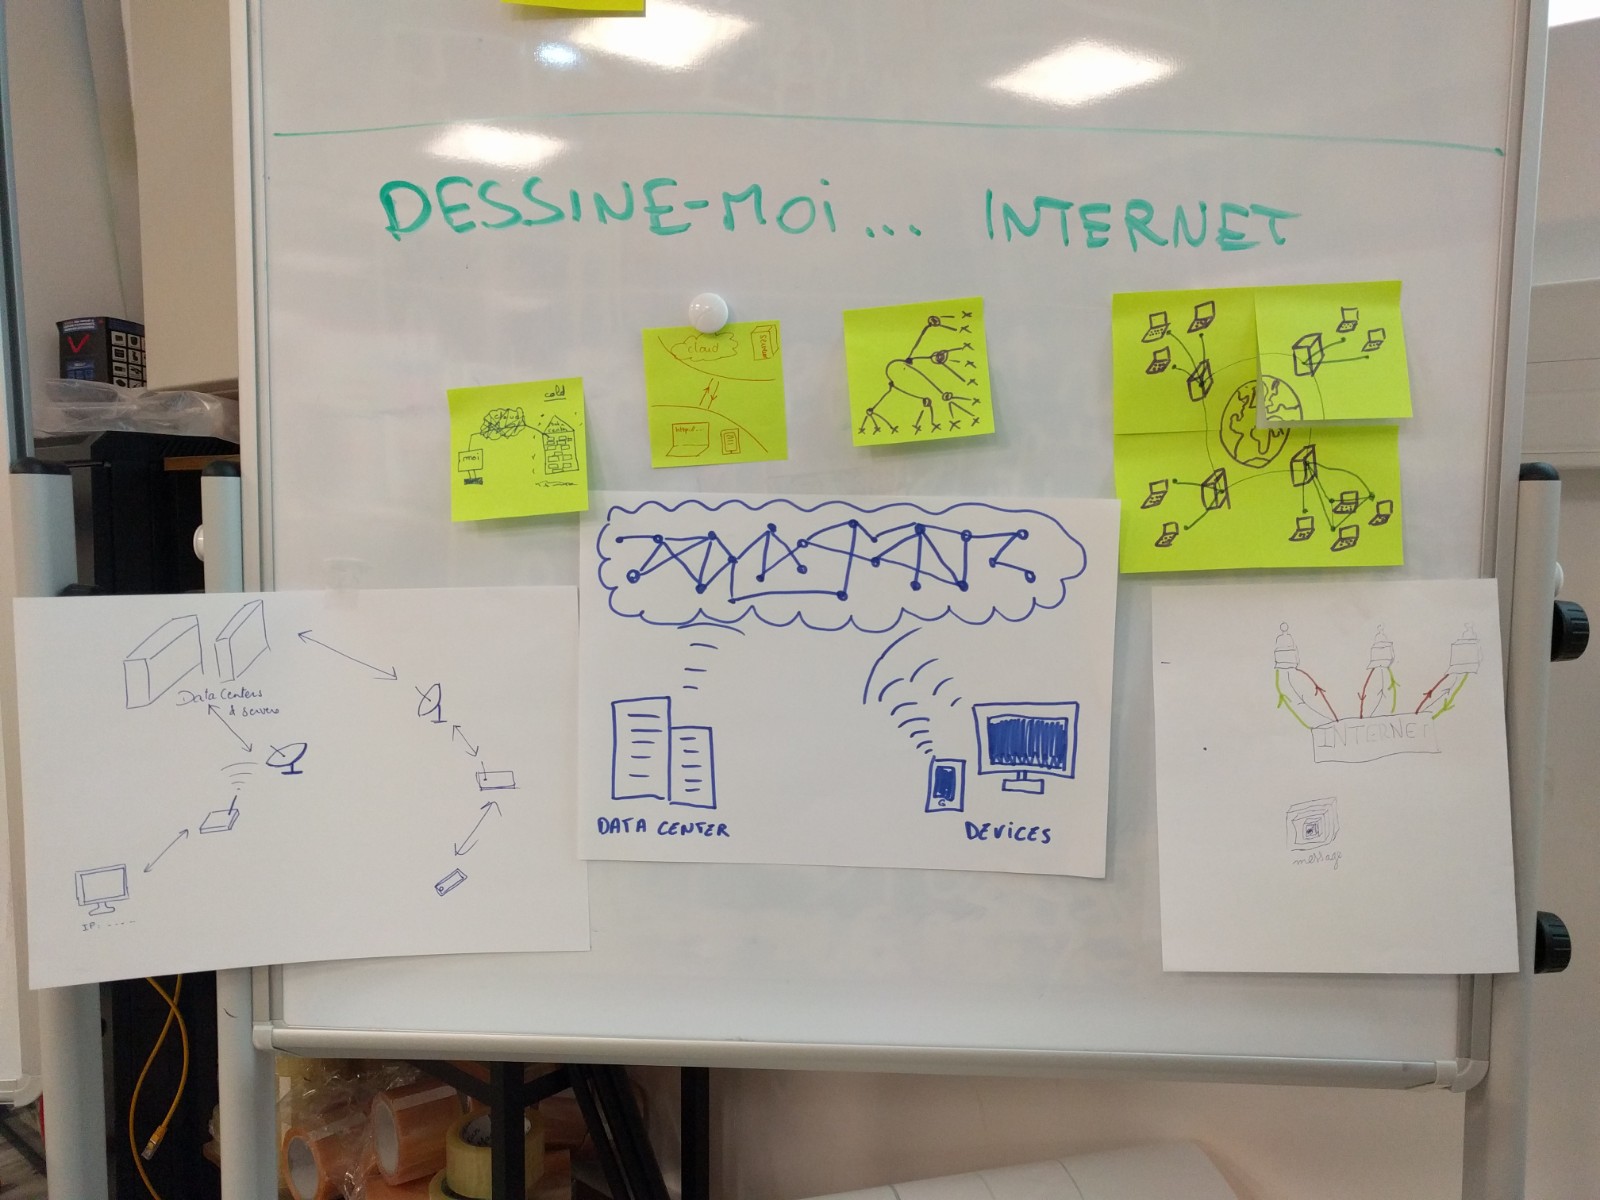 DESSINE-MOI... INTERNET
cold
cloud
moi
Data
center
cloud
server
http://...
Data Centers
& servers
IP: .....
DATA CENTER
DEVICES
INTERNET
message